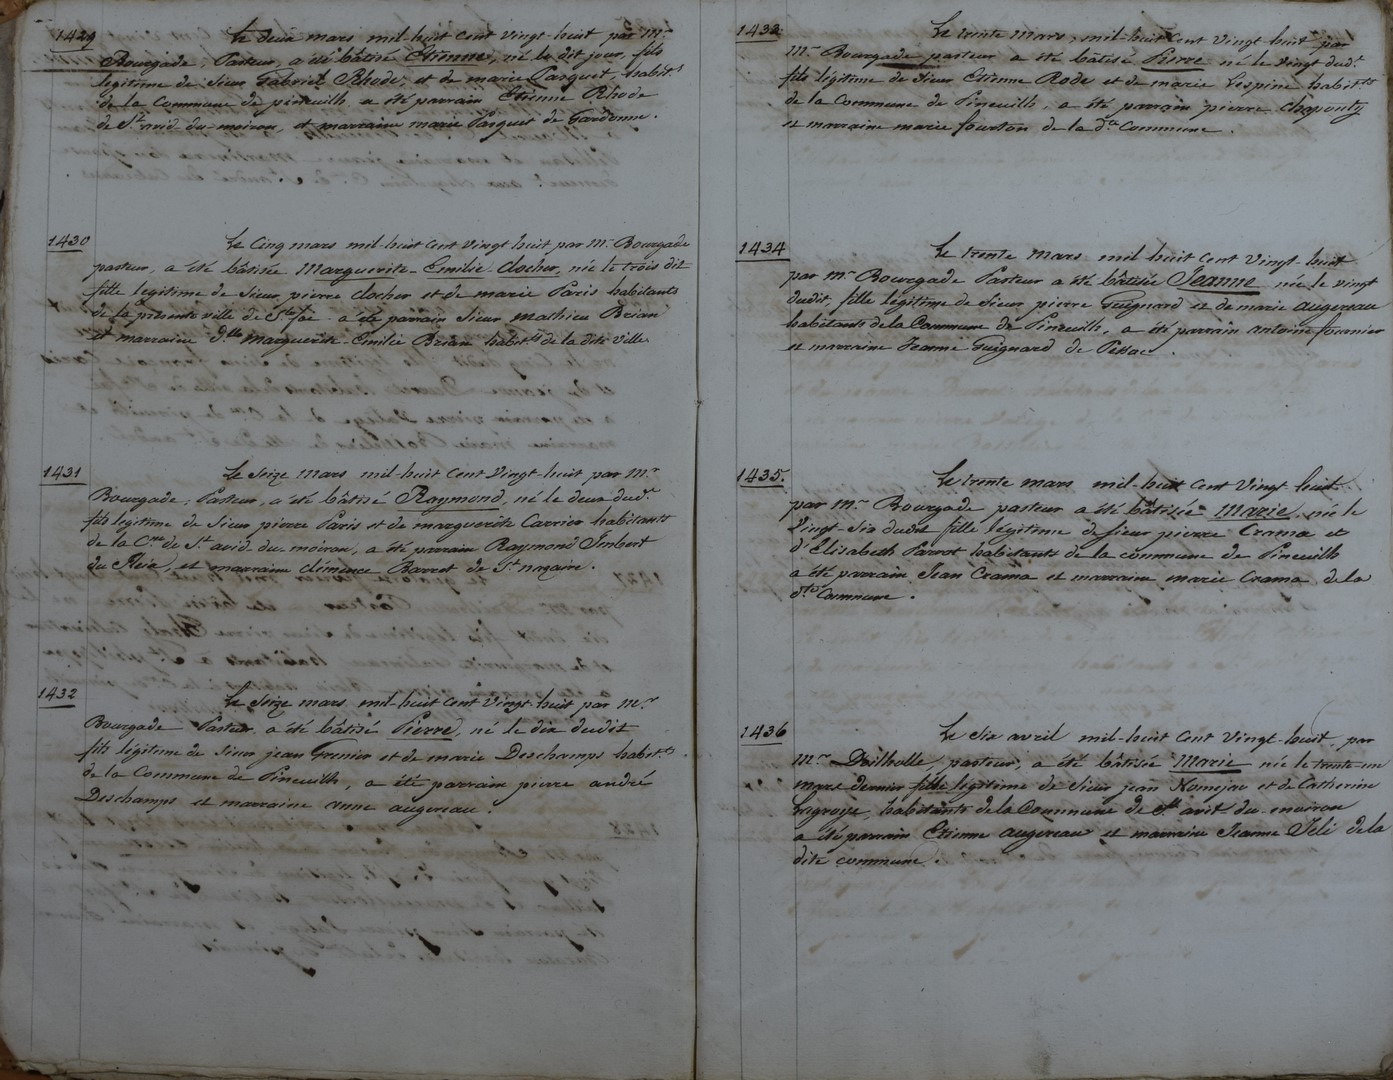 1429
Le deux mars mil-huit cent vingt-huit par Mr.
Bourgade, Pasteur, a été bâtisé Etienne, né le dit jour, fils
légitime de Sieur Gabriel Rhode, et de marie Parquet, habit.s
de la Commune de pineuilh, a été parrain Etienne Rhode
de St. avid-du-moiron, et marraine marie Parquet de Gardonne.
1430
Le Cinq mars mil-huit Cent vingt huit par mr. Bourgade
pasteur, a été bâtisée Marguerite-Emilie Clocher, née le trois dit
fille légitime de Sieur pierre Clocher et de marie Paris habitants
de la présente ville de Ste foi a été parrain Sieur Mathieu Brian
et marraine dlle marguerite-Emilie Brian habit.s de la dite ville.
1431
Le Seize mars mil-huit Cent Vingt-huit par mr.
Bourgade, Pasteur, a été bâtisé Raymond, né le deux dud.t
fils légitime de Sieur pierre Paris et de marguerite Carrier habitants
de la Cne de St avid du moiron, a été parrain Raymond Imbert
du Fleix, et marraine clémence Barret de St nazaire.
1432
Le Seize mars mil-huit Cent Vingt huit par Mr
Bourgade Pasteur, a été bâtisé Pierre, né le dix dudit
fils légitime de Sieur jean Grenier et de marie Deschamps habit.ts
de la Commune de Pineuilh, a été parrain pierre andré
Deschamps et marraine anne augereau.
1433
Le trente Mars, mil-huit Cent vingt huit par
Mr Bourgade pasteur a été bâtisé Pierre né le vingt dud.t
fils légitime de Sieur Etienne Rode et de marie Lespine habit.ts
de la Commune de Pineuilh, a été parrain pierre
et marraine marie fourton de la dte Commune.
1434
Le trente Mars mil huit Cent vingt-huit
par mr Bourgade Pasteur a été bâtisée Jeanne née le vingt
dudit, fille légitime de Sieur pierre Guignard et de marie augereau
habitants de la Commune de Pineuilh, a été parrain antoine fournier
et marraine Jeanne Guignard de Pessac.
1435.
Le trente mars mil-huit Cent Vingt huit
par mr Bourgade pasteur a été bâtisée Marie née le
Vingt-six dudit fille légitime de Sieur pierre Crama et
d'Elisabeth Parrot habitants de la commune de Pineuilh
a été parrain Jean Crama et marraine marie Crama de la
dte Commune.
1436
Le six avril mil-huit Cent Vingt-huit, par
mr pasteur, a été bâtisée Marie née le trente un
mars dernier fille légitime de Sieur jean et de Catherine
habitants de la Commune de St avit-du-moiron
a été parrain Etienne augereau et marraine Jeanne de la
dite commune.